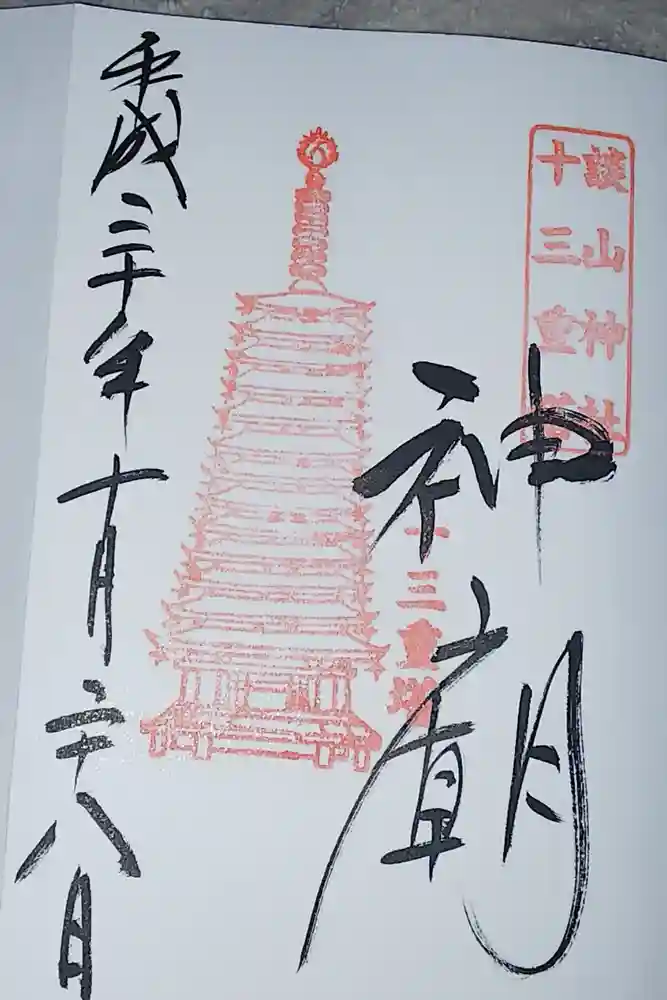 談山神社
十三重塔
神廟
十三重塔
平成三十年十月二十八日